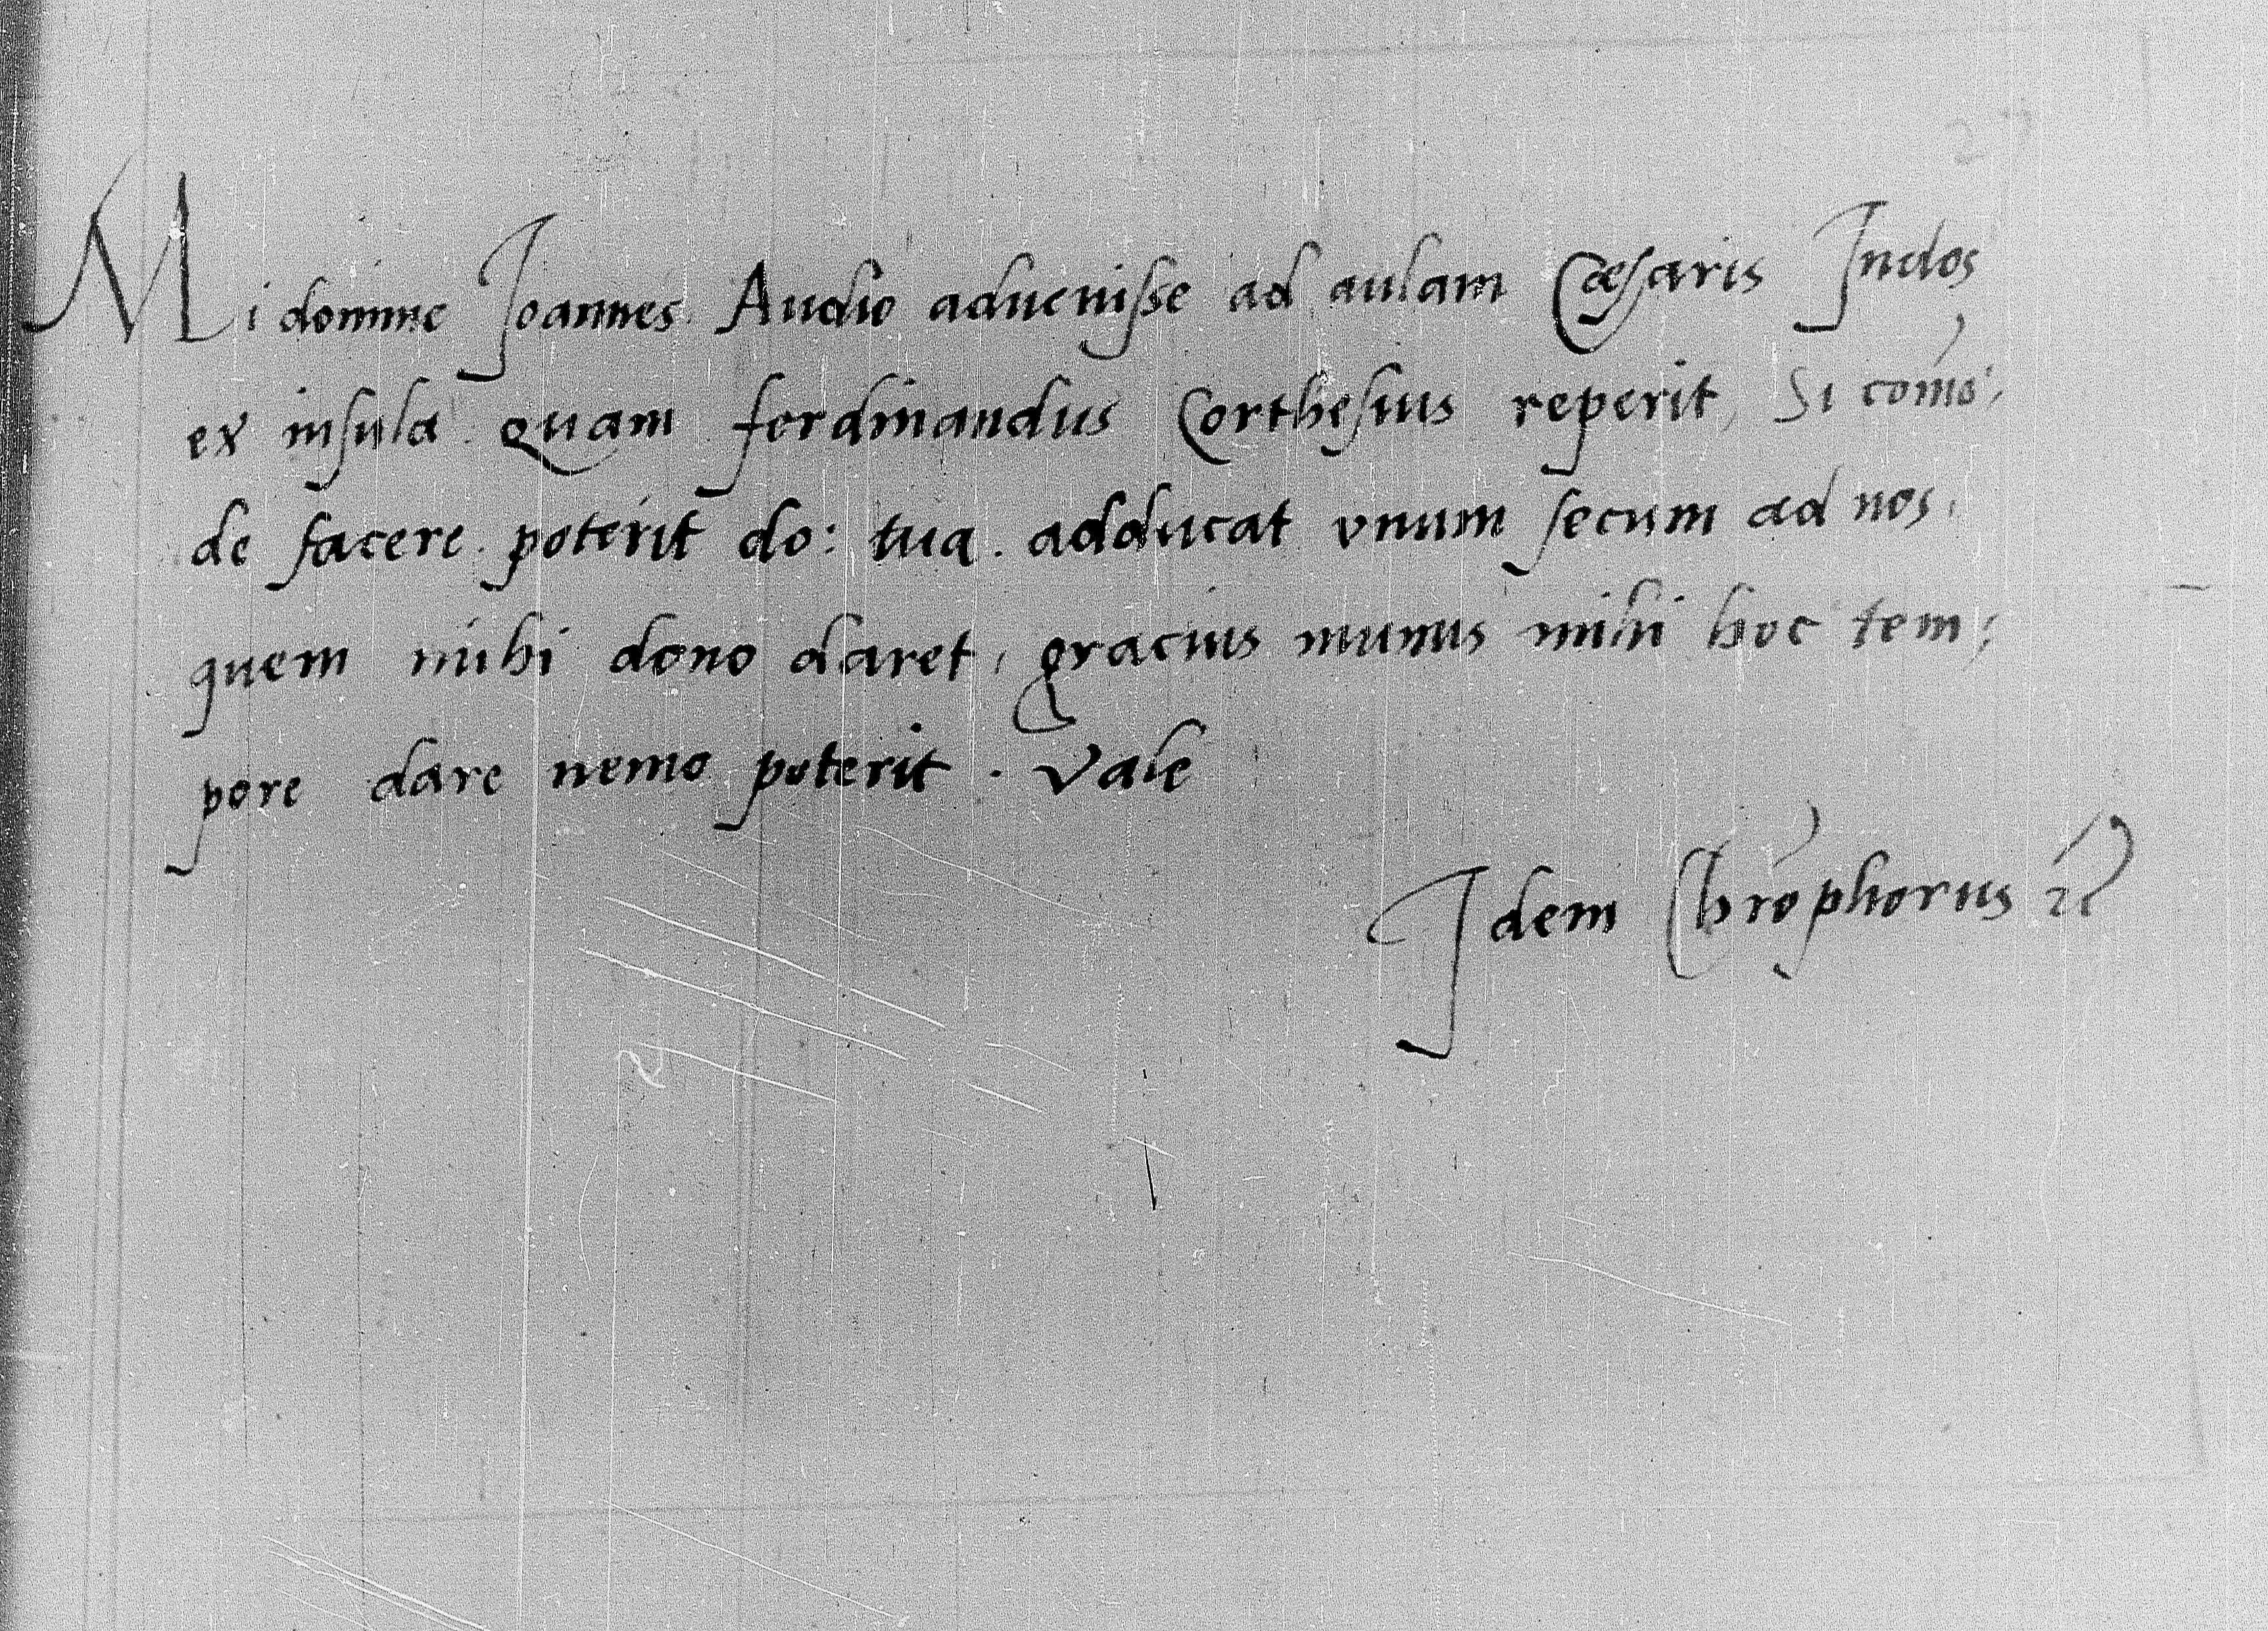 Mi domine Joannes. Audio aduenisse ad aulam Cæsaris Indos
ex insula quam ferdinandus Corthesius reperit, Si com̃o,
de facere poterit do: tua. adducat vnum secum ad nos,
quem mihi dono daret, gracius munus mihi hoc tem,
pore dare nemo poterit. Vale
Idem Chrõphorus &c